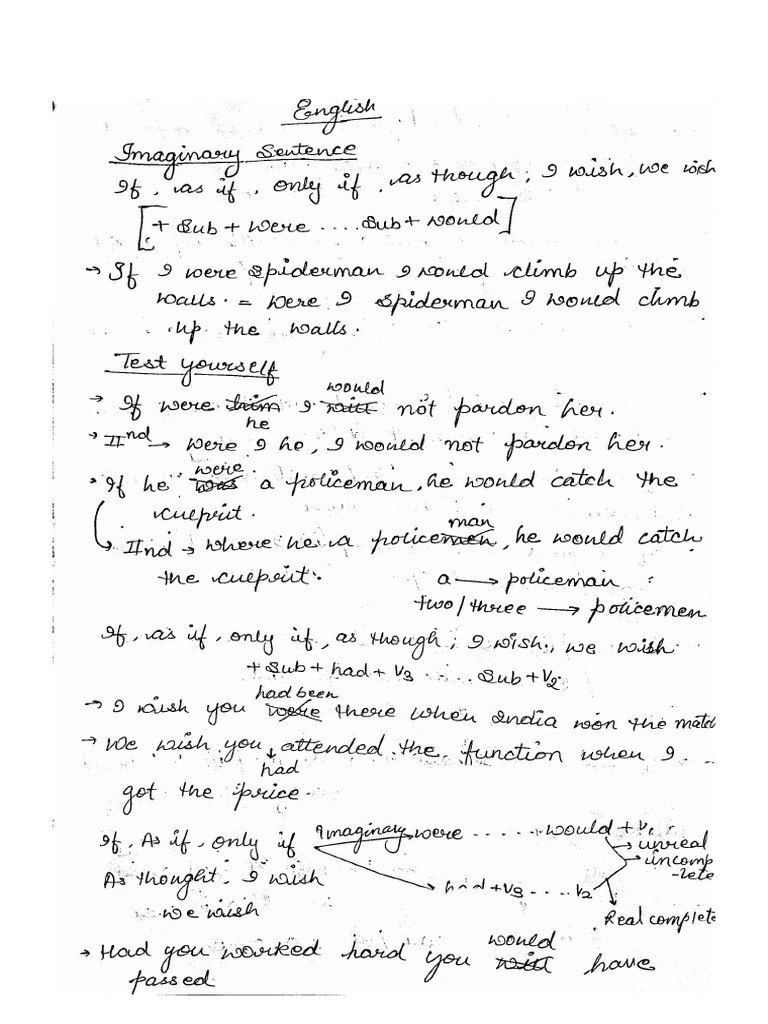 English
Imaginary Sentence
If, as if, only if, as though, I wish, we wish
[+ Sub + were .... Sub + would]
→ If I were Spiderman I would climb up the
walls. = were I spiderman I would climb
up the walls.
Test yourself
would
→ If were him I will not pardon her.
he
→ IInd → were I he, I would not pardon her.
were
• If he was a policeman, he would catch the
culprit.
man
→ IInd → where he a policemen, he would catch
the culprit.
a → policeman
two/three → policemen
If, as if, only if, as though, I wish, we wish
+ Sub + had + V3 ..... Sub + V2
had been
→ I wish you were there when India won the match
→ We wish you attended the function when I
had
got the price.
If, As if, only if Imaginary were ...... would + V1
→ unreal
→ uncomp
-lete
As thought, I wish → had + V3 .... V2
we wish
Real complete
would
→ Had you worked hard you will have
passed